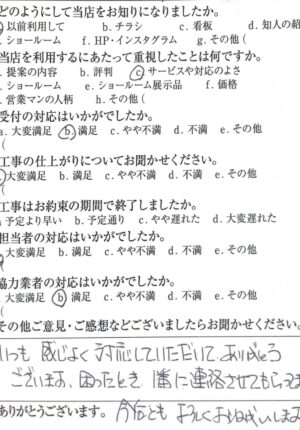 どのようにして当店をお知りになりましたか。
以前利用して b. チラシ c. 看板 d. 知人の紹
. ショールーム f. HP・インスタグラム g. その他 (
当店を利用するにあたって重視したことは何ですか。
. 提案の内容 b. 評判 c. サービスや対応のよさ
. ショールーム e. ショールーム展示品 f. 価格
. 営業マンの人柄 h. その他 (
受付の対応はいかがでしたか。
a. 大変満足 b. 満足 c. やや不満 d. 不満 e. その他
(
工事の仕上がりについてお聞かせください。
大変満足 b. 満足 c. やや不満 d. 不満 e. その他
(
工事はお約束の期間で終了しましたか。
a 予定より早い b. 予定通り c. やや遅れた d. 大変遅れた
担当者の対応はいかがでしたか。
大変満足 b. 満足 c. やや不満 d. 不満 e. その他
(
協力業者の対応はいかがでしたか。
. 大変満足 b 満足 c. やや不満 d. 不満 e. その他
(
その他ご意見・ご感想などございましたらお聞かせください。
いつも 感じよく 対応していただいて ありがとう
ございます、困ったとき 1番に連絡させてもらってます
ありがとうございます。 今後とも よろしくおねがいします